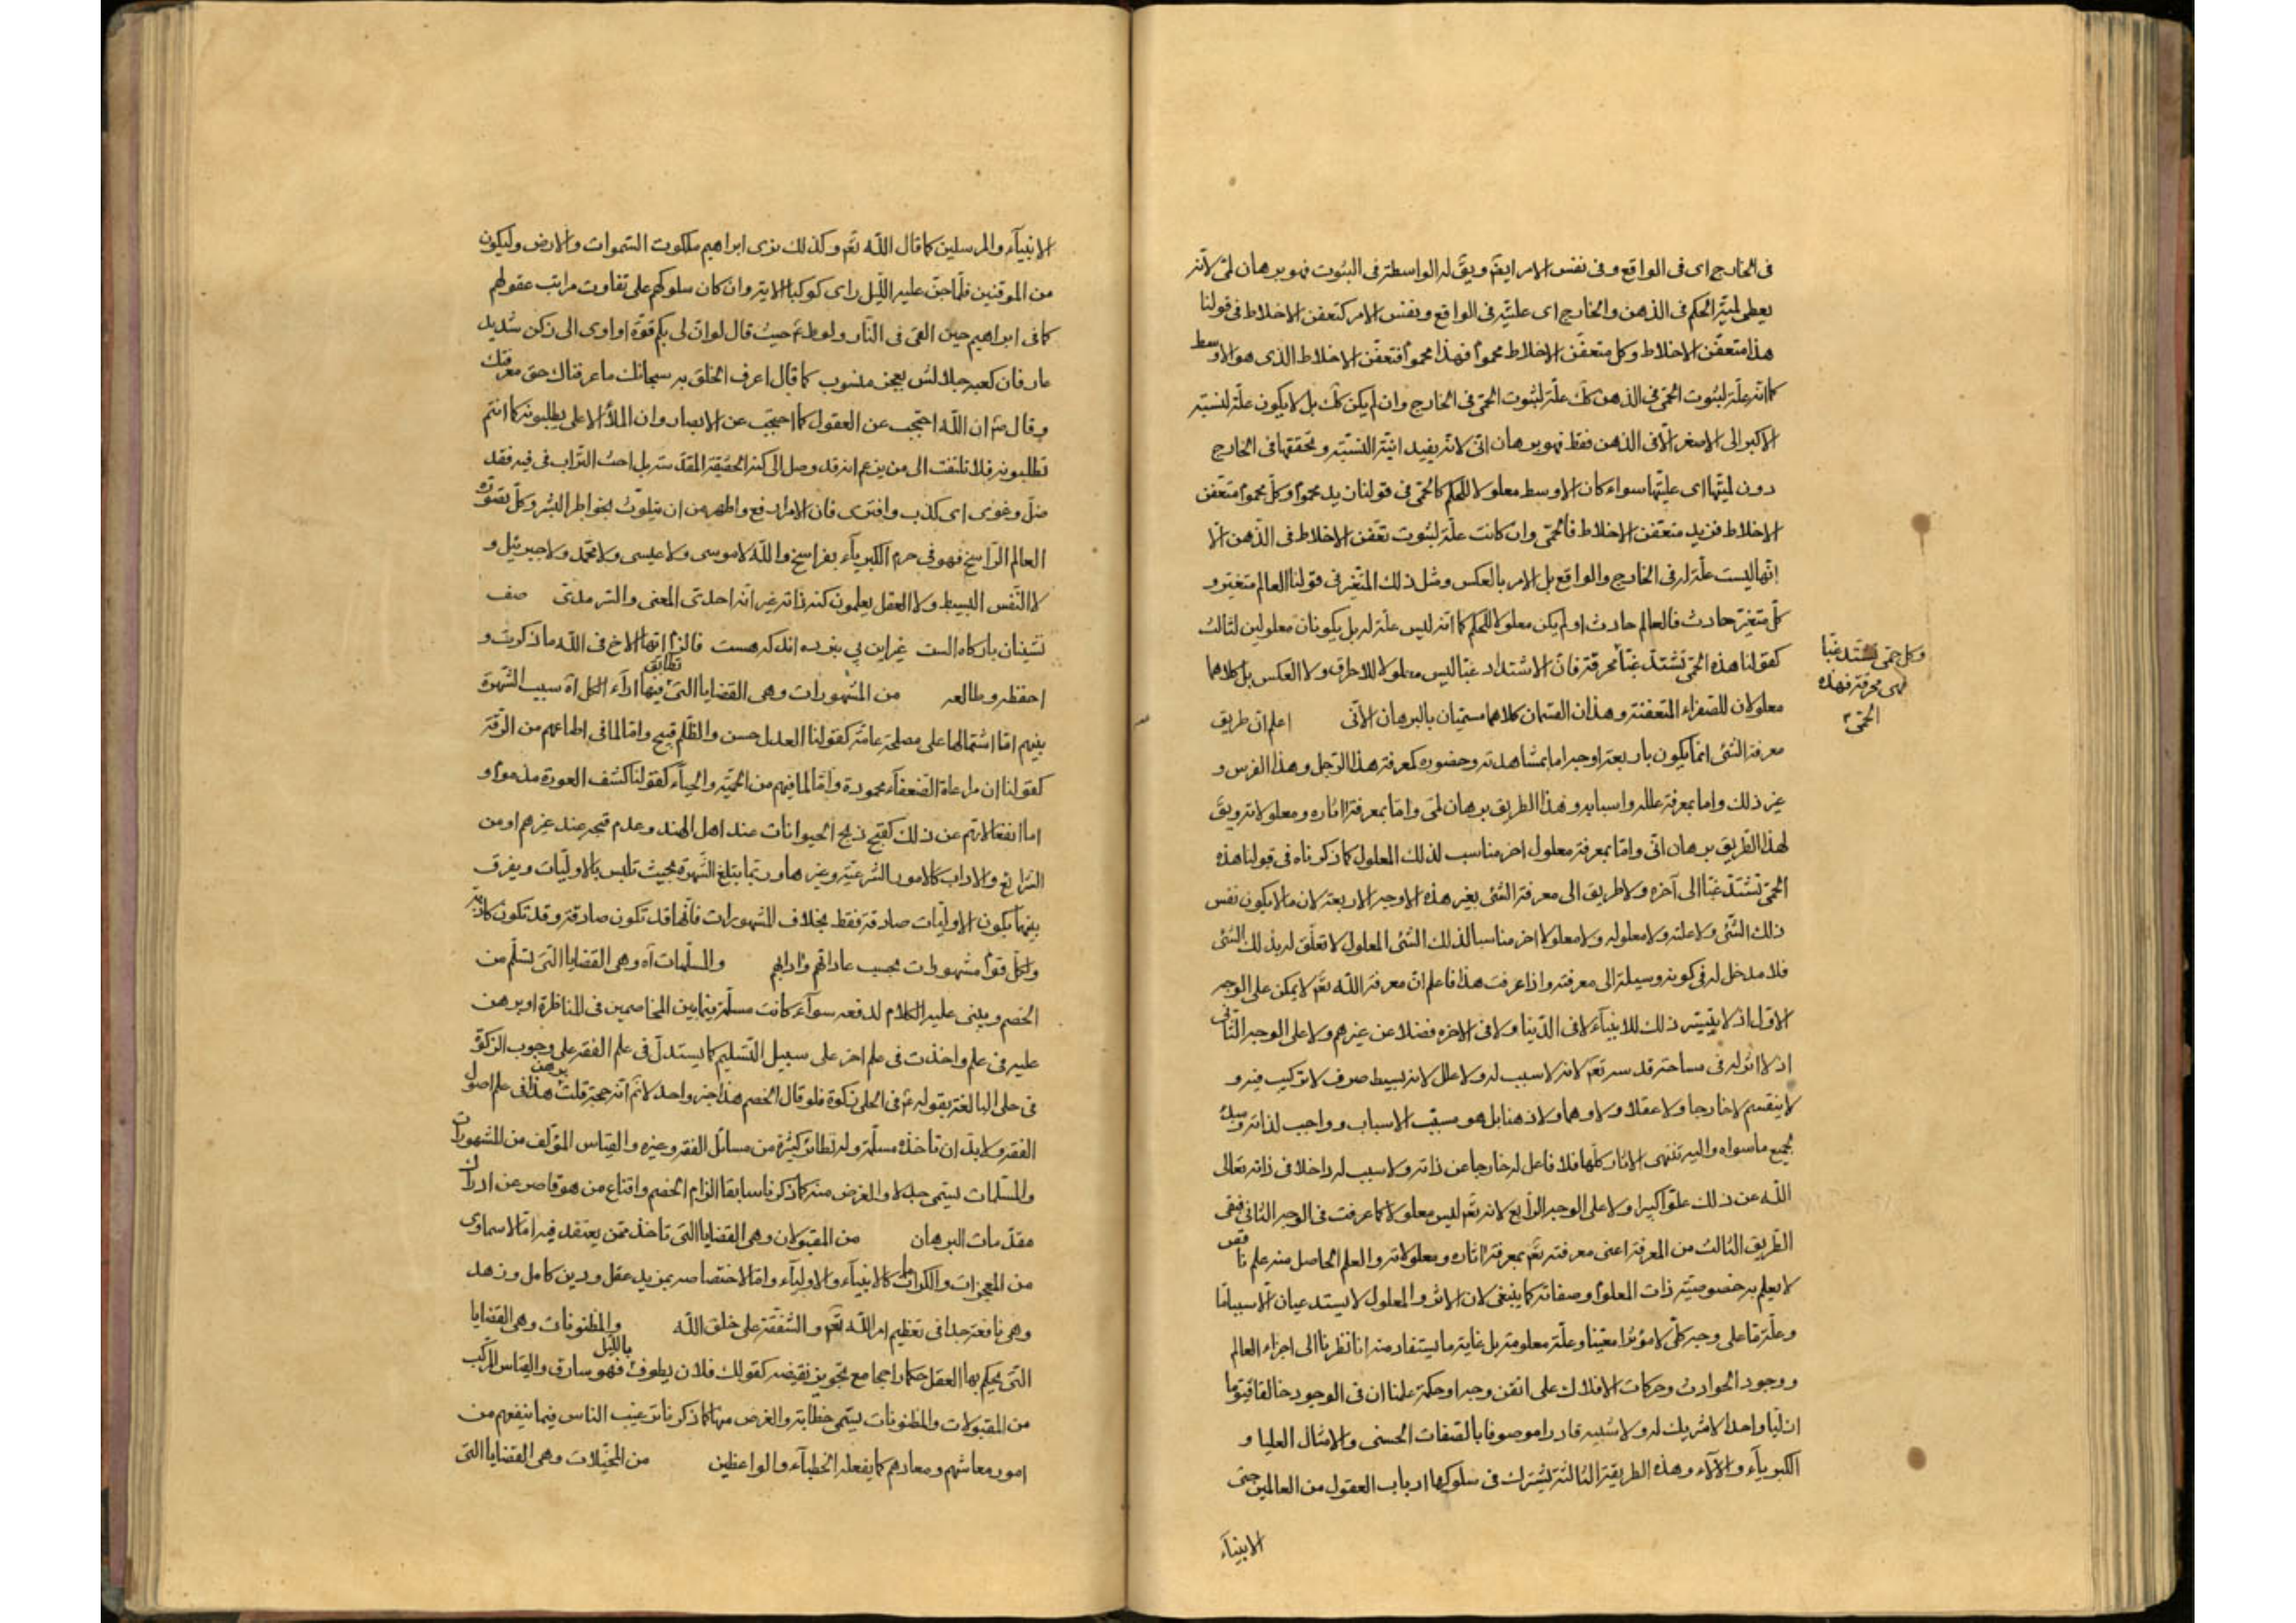 في الخارج اى فى الواقع وفى نفس الامر ايضً ويقَ له الواسطة فى الثبوت فهو برهان لمّى لانّه
يعطى لميّة الحكم فى الذهن والخارج اى عليّته فى الواقع ونفس الامر كتعفّن الاخلاط فى قولنا
هذا متعفّن الاخلاط وكل متعفّن الاخلاط محموم فهذا محموم فتعفّن الاخلاط الذى هو الاوسط
كما انّه علّة لثبوت الحمّى فى الذهن كك علّة لثبوت الحمّى فى الخارج وان لم يكن كك بل لا يكون علّة لنسبة
الاكبر الى الاصغر الّا فى الذهن فقط فهو برهان انّى لانّه يفيد انيّة النسبة وتحققها فى الخارج
دون لميّتها اى عليّتها سواء كان الاوسط معلولا للحكم كالحمّى فى قولنا زيد محموم وكلّ محموم متعفّن
الاخلاط فزيد متعفّن الاخلاط فالحمّى وان كانت علّة لثبوت تعفّن الاخلاط فى الذّهن الّا
انّها ليست علّة له فى الخارج والواقع بل الامر بالعكس ومثل ذلك المتغيّر فى قولنا العالم متغيّر و
كلّ متغيّر حادث فالعالم حادث او لم يكن معلولا للحكم كما انّه ليس علّة له بل يكونان معلولين لثالث
كقولنا هذه الحمّى تشتدّ غبّا محرقة فانّ الاشتداد غبّا ليس معلولا للاحراق ولا العكس بل كلاهما
وكل حمّى تشتد غبّا
فهى محرقة فهذه
الحمّى
معلولان للصفراء المتعفنة وهذان القسمان كلاهما مسمّيان بالبرهان الانّى اعلم انّ طريق
معرفة الشئ انما يكون باربعة اوجه اما بمشاهدته وحضوره كمعرفة هذا الرّجل وهذا الفرس و
غير ذلك واما بمعرفة علله واسبابه وهذا الطريق برهان لمّى وامّا بمعرفة اثاره ومعلولاته ويقَ
لهذا الطّريق برهان انّى وامّا بمعرفة معلول اخر مناسب لذلك المعلول كما ذكرناه فى قولنا هذه
الحمّى تشتدّ غبّا الى آخره ولا طريق الى معرفة الشئ بغير هذه الاوجه الاربعة لان ما لا يكون نفس
ذلك الشّئ ولا علته ولا معلوله ولا معلولا اخر مناسبا لذلك الشّئ المعلول لا تعلّق له بذلك الشّئ
فلا مدخل له فى كونه وسيلة الى معرفته واذا عرفت هذا فاعلم انّ معرفة اللّه تعَ لا يمكن على الوجه
الاوّل اذ لا يتيسّر ذلك للانبيآء لا فى الدّنيا ولا فى الاخره فضلا عن غيرهم ولا على الوجه الثّانى
اذ لا اثر له فى ساحة قدسه تعَ لانه لا سبب له ولا علل لانه بسيط صرف لا تركيب فيه و
لا ينقسم لا خارجا ولا عقلا ولا وهما ولا ذهنا بل هو مسبّب الاسباب وواجب لذاته ومبدأ
لجميع ما سواه واليه تنتهى الاثار كلّها فلا فاعل له خارجا عن ذاته ولا سبب له داخلا فى ذاته تعالى
اللّه عن ذلك علوّا كبيرا ولا على الوجه الرّابع لانه تعَ ليس معلولا كما عرفت فى الوجه الثانى فبقى
الطّريق الثالث من المعرفة اعنى معرفته تعَ بمعرفة اثاره ومعلولاته والعلم الحاصل منه علم ناقص
لا يعلم به خصوصيّة ذات المعلوم وصفاته كما ينبغى لان الاثر والمعلول لا يستدعيان الّا سببا مّا
وعلّة مّا على وجه كلّى لا مؤثرا معيّنا وعلّة معلومة بل غاية ما يستفاد منه انا نظرنا الى اجزاء العالم
ووجود الحوادث وحركات الافلاك على اتقن وجه او حكمة علمنا ان فى الوجود خالقا قيّوما
ازليّا واحدا لا شريك له ولا شبيه قادرا موصوفا بالصّفات الحسنى والامثال العليا و
الكبريآء والآلآء وهذه الطريقة الثالثة يشترك فى سلوكها ارباب العقول من العالمين حتى
الانبيآء
الانبيآء والمرسلين كما قال اللّه تعَ وكذلك نرى ابراهيم ملكوت السّموات والارض وليكون
من الموقنين فلمّا جنّ عليه اللّيل راى كوكبا الاية وان كان سلوكهم على تفاوت مراتب عقولهم
كما فى ابراهيم حين القى فى النّار ولوط عَ حيث قال لو انّ لى بكم قوّة او آوى الى ركن شديد
عارفان كعبه جلالش بعجز منسوب كما قال اعرف الخلق به سبحانك ما عرفناك حق معرفتك
وقال صَ ان اللّه احتجب عن العقول كما احتجب عن الابصار وان الملأ الاعلى يطلبونه كما انتم
تطلبونه فلا تلتفت الى من يزعم انه قد وصل الى كنه الحقيقة المقدّسة بل احث التّراب فى فيه فقد
ضلّ وغوى اى كذب وافترى فان الامر ارفع واطهر من ان يتلوّث بخواطر البشر وكلّ تصوّره
العالم الرّاسخ فهو فى حرم الكبريآء بفراسخ واللّه لا موسى ولا عيسى ولا محمّد ولا جبرئيل و
لا النّفس البسيط ولا العقل يعلمون كنه ذاته غير انّه احدىّ المعنى والسّرمدىّ صف
نشينان باركاه الست غير اين پى نبرده اند كه هست فالزم ايّها الاخ فى اللّه ما ذكرت و
احفظه وطالعه من المشهورات وهى القضايا التى فيها تطابق ارآء الكل آه سبب الشّهرة
بينهم امّا اشتمالها على مصلحة عامّة كقولنا العدل حسن والظّلم قبيح وامّا لما فى طباعهم من الرّقّة
كقولنا ان مراعاة الضعفآء محمودة وامّا لما فيهم من الحميّة والحيآء كقولنا كشف العورة مذموم و
اما انفعالاتهم عن ذلك كقبح ذبح الحيوانات عند اهل الهند وعدم قبحه عند غيرهم او من
الشرايع والاداب كالامور الشرعيّة وغيرها وربّما يبلغ الشّهرة بحيث تلبس بالاوليّات ويفرق
بينهما بكون الاوليّات صادقة فقط بخلاف المشهورات فانّها قد تكون صادقة وقد تكون كاذبة
ولكلّ قوم مشهورات بحسب عاداتهم وآدابهم والمسلّمات آه وهى القضايا التى تسلّم من
الخصم ويبنى عليه الكلام لدفعه سوآء كانت مسلّمة فيما بين المخاصمين فى المناظرة او برهن
عليه فى علم واخذت فى علم اخر على سبيل التّسليم كما يستدلّ فى علم الفقه على وجوب الزكوة
فى حلى البالغة بقوله عَ فى الحلى زكوة فلو قال الخصم هذا خبر واحد لا نمَ انّه حجة قلت هذا برهن فى علم اصول
الفقه ولا بدّ ان تأخذه مسلّمة وله نظائر كثيرة من مسائل الفقه وغيره والقياس المؤلّف من المشهورات
والمسلّمات يسمّى جدلا والغرض منه كما ذكرنا سابقا الزام الخصم واقناع من هو قاصر عن ادراك
مقدّمات البرهان من المقبولات وهى القضايا التى تاخذ ممّن يعتقد فيه امّا لامر سماوى
من المعجزات والكرامات كالانبيآء والاوليآء وامّا لاختصاصه بمزيد عقل ودين كامل وزهد
وهى نافعة جدا فى تعظيم امر اللّه تعَ والشّفقة على خلق اللّه والمظنونات وهى القضايا
التى يحكم بها العقل حكما راجحا مع تجويز نقيضه كقولك فلان يطوف بالليل فهو سارق والقياس المركّب
من المقبولات والمظنونات يسمّى خطابة والغرض منها كما ذكرنا ترغيب الناس فيما ينفعهم من
امور معاشهم ومعادهم كما يفعله الخطبآء والواعظين من المخيّلات وهى القضايا التى